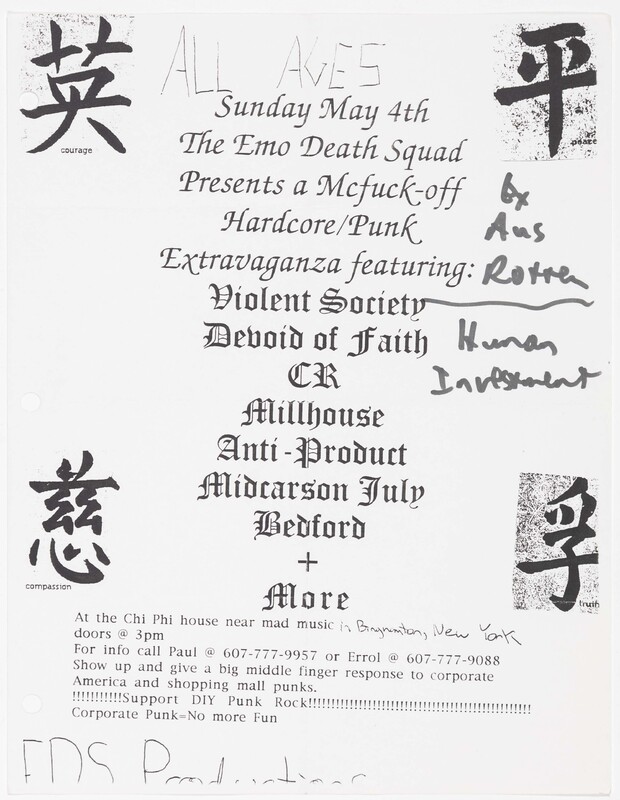 英
courage
ALL AGES
平
peace
Sunday May 4th
The Emo Death Squad
Presents a Mcfuck-off
Hardcore/Punk
Extravaganza featuring:
Ex
Aus
Rotten
Violent Society
Devoid of Faith
CR
Millhouse
Anti-Product
Midcarson July
Bedford
+
More
Human
Investment
慈
compassion
孚
truth
At the Chi Phi house near mad music in Binghamton, New York
doors @ 3pm
For info call Paul @ 607-777-9957 or Errol @ 607-777-9088
Show up and give a big middle finger response to corporate
America and shopping mall punks.
!!!!!!!!!!!Support DIY Punk Rock!!!!!!!!!!!!!!!!!!!!!!!!!!!!!!!!!!!!!!!!!!!!!!!!
Corporate Punk=No more Fun
EDS Productions